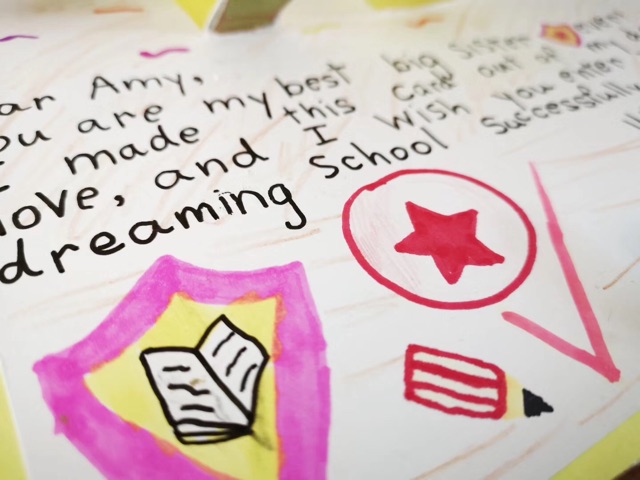 ar Amy,
ou are my best big sister
I made this card out of my
love, and I wish you enter
dreaming school successfully